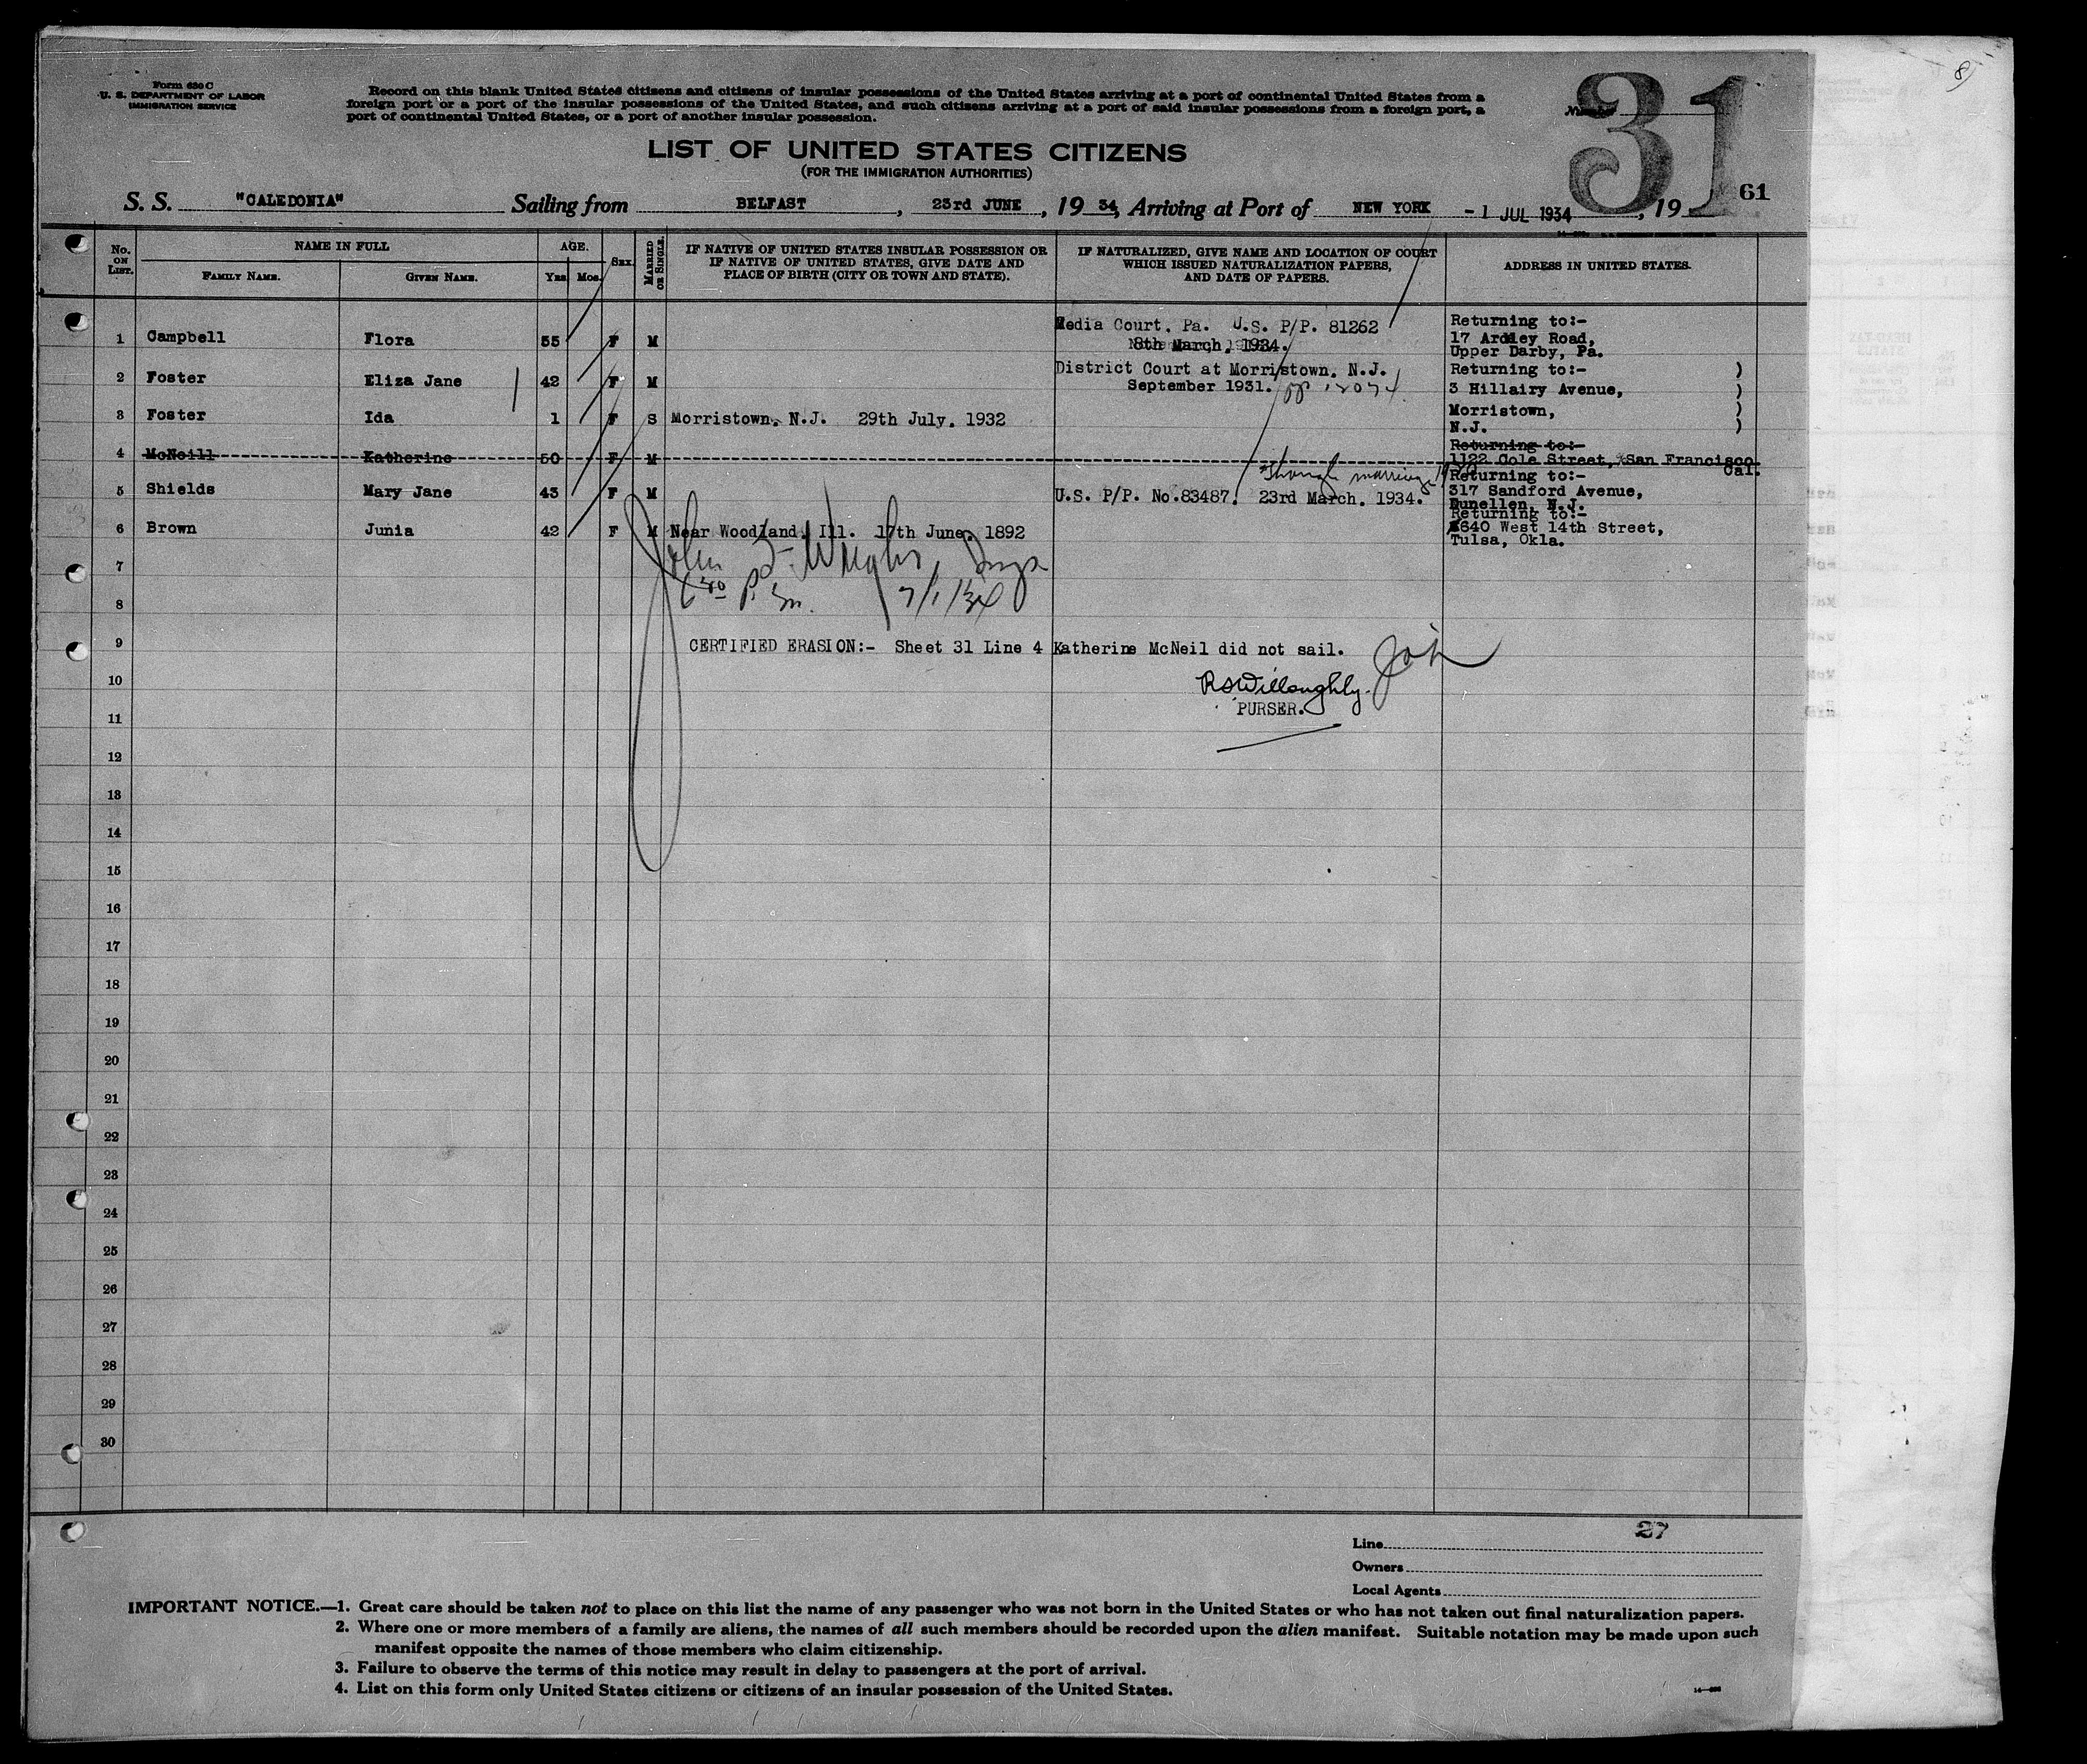 8
Form 630 C
U. S. DEPARTMENT OF LABOR
IMMIGRATION SERVICE
Record on this blank United States citizens and citizens of insular possessions of the United States arriving at a port of continental United States from a
foreign port or a port of the insular possessions of the United States, and such citizens arriving at a port of said insular possessions from a foreign port, a
port of continental United States, or a port of another insular possession.
Number
31
61
LIST OF UNITED STATES CITIZENS
(FOR THE IMMIGRATION AUTHORITIES)
S. S. "CALEDONIA" Sailing from BELFAST, 23rd JUNE, 19 34, Arriving at Port of NEW YORK - 1 JUL 1934, 19
No. ON LIST. NAME IN FULL AGE. SEX. MARRIED OR SINGLE. IF NATIVE OF UNITED STATES INSULAR POSSESSION OR IF NATIVE OF UNITED STATES, GIVE DATE AND PLACE OF BIRTH (CITY OR TOWN AND STATE). IF NATURALIZED, GIVE NAME AND LOCATION OF COURT WHICH ISSUED NATURALIZATION PAPERS, AND DATE OF PAPERS. ADDRESS IN UNITED STATES.
FAMILY NAME. GIVEN NAME. Yrs. Mos.
1 Campbell Flora 55 F M Media Court, Pa. U.S. P/P. 81262 8th March, 1934. Returning to:- 17 Ardley Road, Upper Darby, Pa.
2 Foster Eliza Jane 42 F M District Court at Morristown, N.J. September 1931. Returning to:- ) 3 Hillairy Avenue, )
3 Foster Ida 1 F S Morristown, N.J. 29th July, 1932 Morristown, ) N.J. )
4 McNeill Katherine 50 F M Returning to:- 1122 Cole Street, San Francisco Cal.
5 Shields Mary Jane 43 F M U.S. P/P. No.83487. 23rd March, 1934. Through marriage Returning to:- 317 Sandford Avenue, Dunellen, N.J.
6 Brown Junia 42 F M Near Woodland, Ill. 17th June, 1892 Returning to:- 640 West 14th Street, Tulsa, Okla.
7
John
8
P.M. 7/1/34
9 CERTIFIED ERASION:- Sheet 31 Line 4 Katherine McNeil did not sail.
10
RSWilloughby.
11 PURSER.
12
13
14
15
16
17
18
19
20
21
22
23
24
25
26
27
28
29
30
27
Line
Owners
Local Agents
IMPORTANT NOTICE.—1. Great care should be taken not to place on this list the name of any passenger who was not born in the United States or who has not taken out final naturalization papers.
2. Where one or more members of a family are aliens, the names of all such members should be recorded upon the alien manifest. Suitable notation may be made upon such
manifest opposite the names of those members who claim citizenship.
3. Failure to observe the terms of this notice may result in delay to passengers at the port of arrival.
4. List on this form only United States citizens or citizens of an insular possession of the United States.